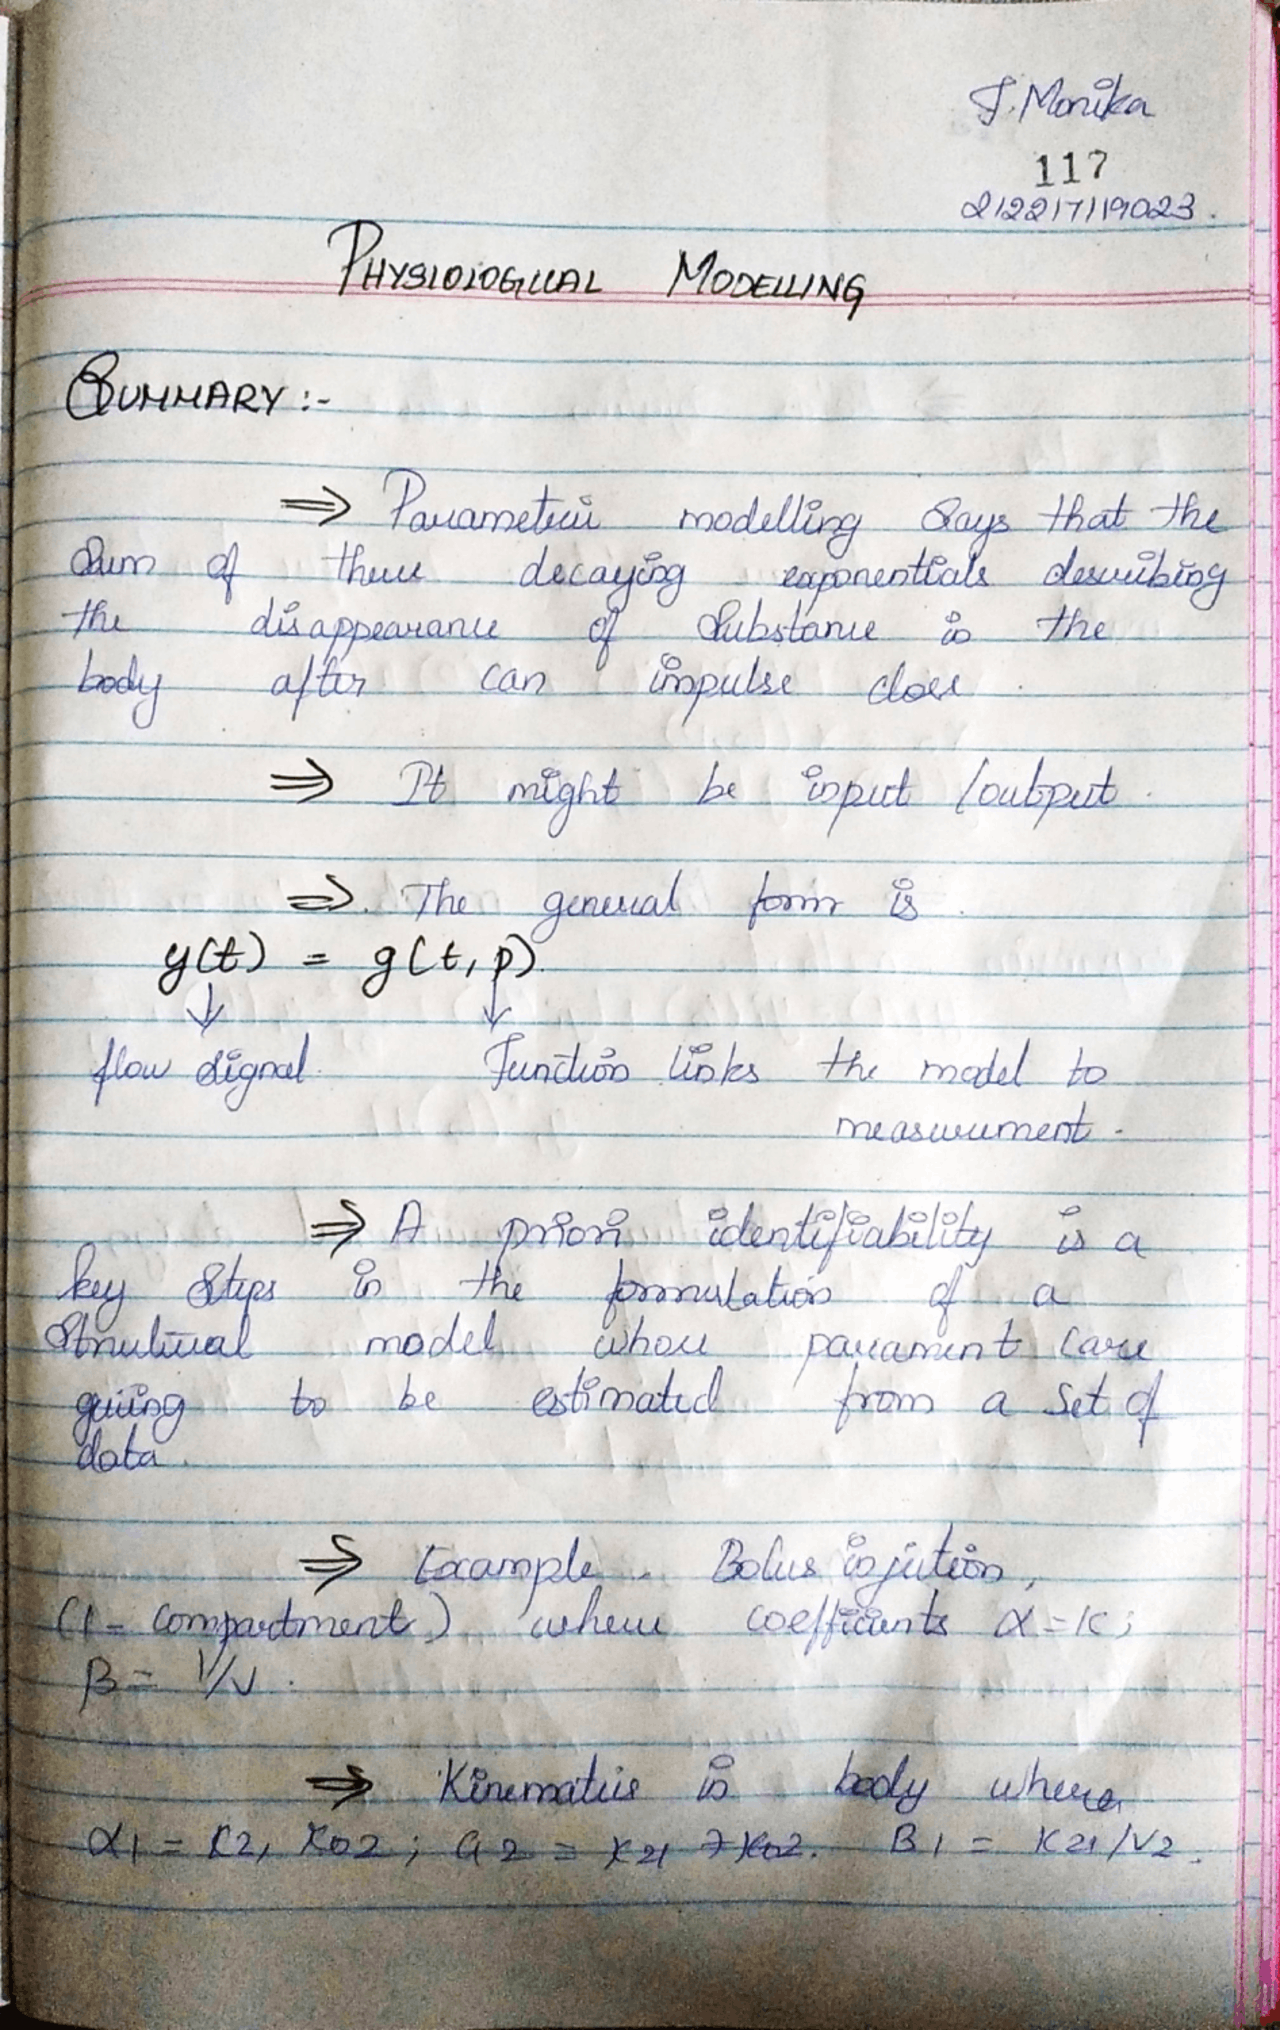 J. Monika
117
212217119023.
PHYSIOLOGICAL MODELLING
SUMMARY :-
⇒ Parametric modelling says that the
sum of three decaying exponentials describing
the disappearance of substance in the
body after can impulse dose.
⇒ It might be input / output.
⇒. The general form is.
y(t) = g(t, p).
↓ ↓
flow signal. Function links the model to
measurement.
⇒ A priori identifiability is a
key steps in the formulation of a
structural model whose parament care
going to be estimated from a set of
data.
⇒ Example. Bolus injection,
(1- compartment) where coefficients α = K;
β = 1/V.
⇒ Kinematics in body where
α1 = K2, K02 ; a2 = K21 7 K02. B1 = K21/V2.